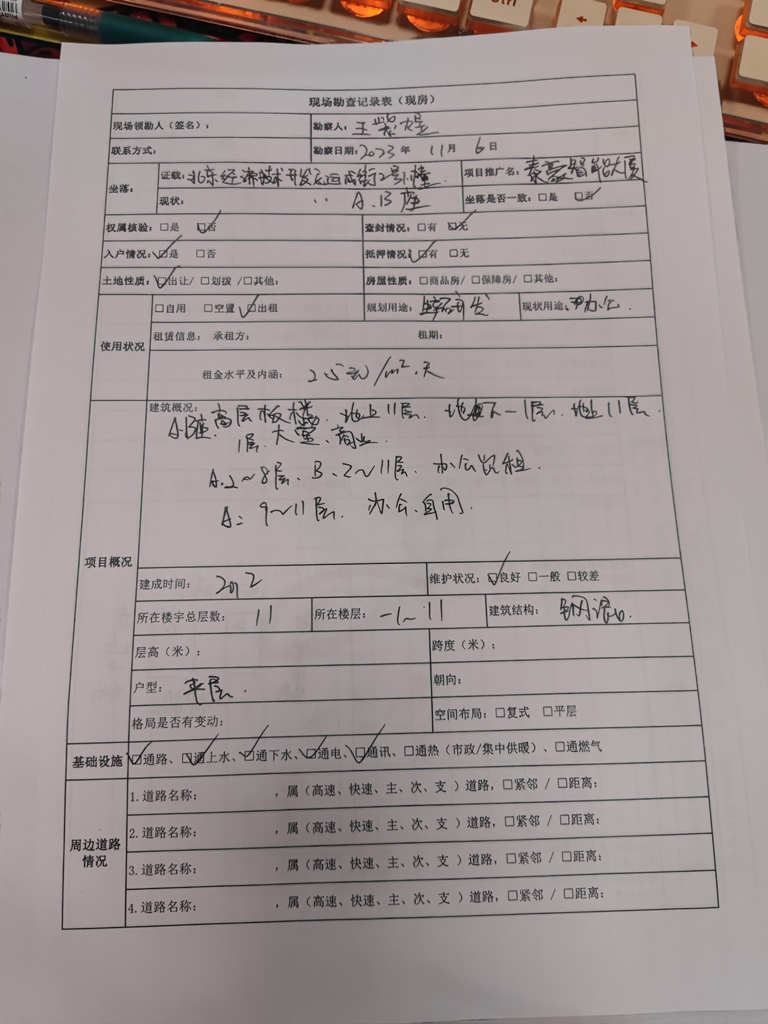 Ctrl
现场勘查记录表（现房）
现场领勘人（签名）： 勘察人：王紫煜
联系方式： 勘察日期：2023年 11月 6日
坐落： 证载：北京经济技术开发区运成街2号1幢 项目推广名：泰豪智能大厦
现状： 〃 A.B座 坐落是否一致：□是 ☑否
权属核验：□是 ☑否 查封情况：□有 ☑无
入户情况：☑是 □否 抵押情况：☑有 □无
土地性质：☑出让/□划拨/□其他： 房屋性质：□商品房/□保障房/□其他：
使用状况 □自用 □空置 ☑出租 规划用途： 研发 现状用途： 办公.
租赁信息： 承租方： 租期：
租金水平及内涵： 2.5元/m².天
项目概况 建筑概况：
A.B座.高层板楼. 地上11层. 地下-1层. 地上11层.
1层.大堂、商业
A.2~8层、B、2~11层. 办公出租.
A：9~11层. 办公.自用.
建成时间： 2012 维护状况：☑良好 □一般 □较差
所在楼宇总层数： 11 所在楼层： -1~11 建筑结构： 钢混.
层高（米）： 跨度（米）：
户型： 平层. 朝向：
格局是否有变动： 空间布局：□复式 □平层
基础设施 ☑通路、☑通上水、☑通下水、☑通电、☑通讯、□通热（市政/集中供暖）、□通燃气
周边道路情况 1.道路名称： ，属（高速、快速、主、次、支 ）道路，□紧邻 / □距离：
2.道路名称： ，属（高速、快速、主、次、支 ）道路，□紧邻 / □距离：
3.道路名称： ，属（高速、快速、主、次、支 ）道路，□紧邻 / □距离：
4.道路名称： ，属（高速、快速、主、次、支 ）道路，□紧邻 / □距离：